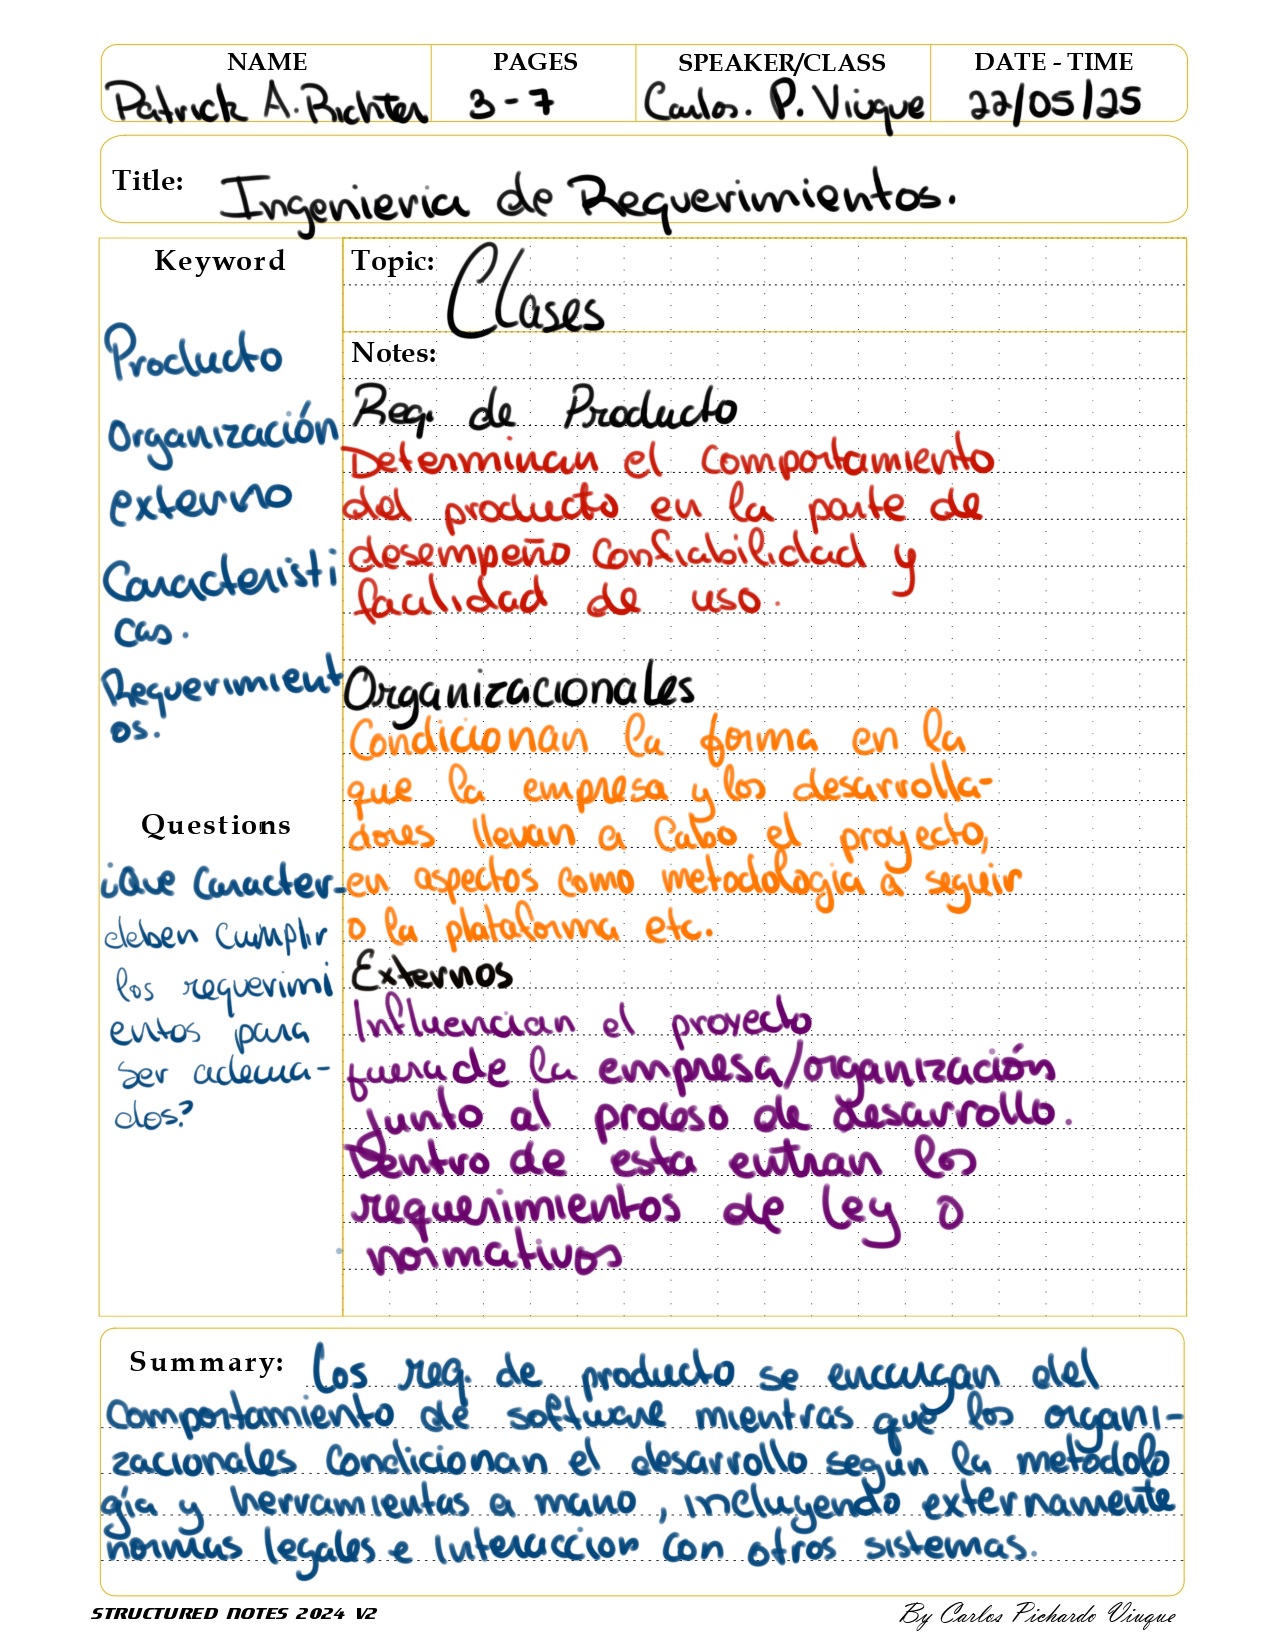 NAME PAGES SPEAKER/CLASS DATE - TIME
Patrick A. Richter 3-7 Carlos. P. Viuque 22/05/25
Title: Ingenieria de Requerimientos.
Keyword
Producto
Organización
externo
Caracteristi
cas.
Requerimient
os.
Questions
¿Que Caracter-
deben cumplir
los requerimi
entos para
ser adecua-
dos?
Topic: Clases
Notes:
Req. de Producto
Determinan el comportamiento
del producto en la parte de
desempeño confiabilidad y
facilidad de uso.
Organizacionales
Condicionan la forma en la
que la empresa y los desarrolla-
dores llevan a Cabo el proyecto,
en aspectos como metodologia a seguir
o la plataforma etc.
Externos
Influencian el proyecto
fuera de la empresa/organización
Junto al proceso de desarrollo.
Dentro de esta entran los
requerimientos de ley o
normativos
Summary: Los req. de producto se encargan del
comportamiento de software mientras que los organi-
zacionales Condicionan el desarrollo según la metodolo
gía y herramientas a mano, incluyendo externamente
normas legales e Interaccion con otros sistemas.
STRUCTURED NOTES 2024 V2
By Carlos Pichardo Viuque